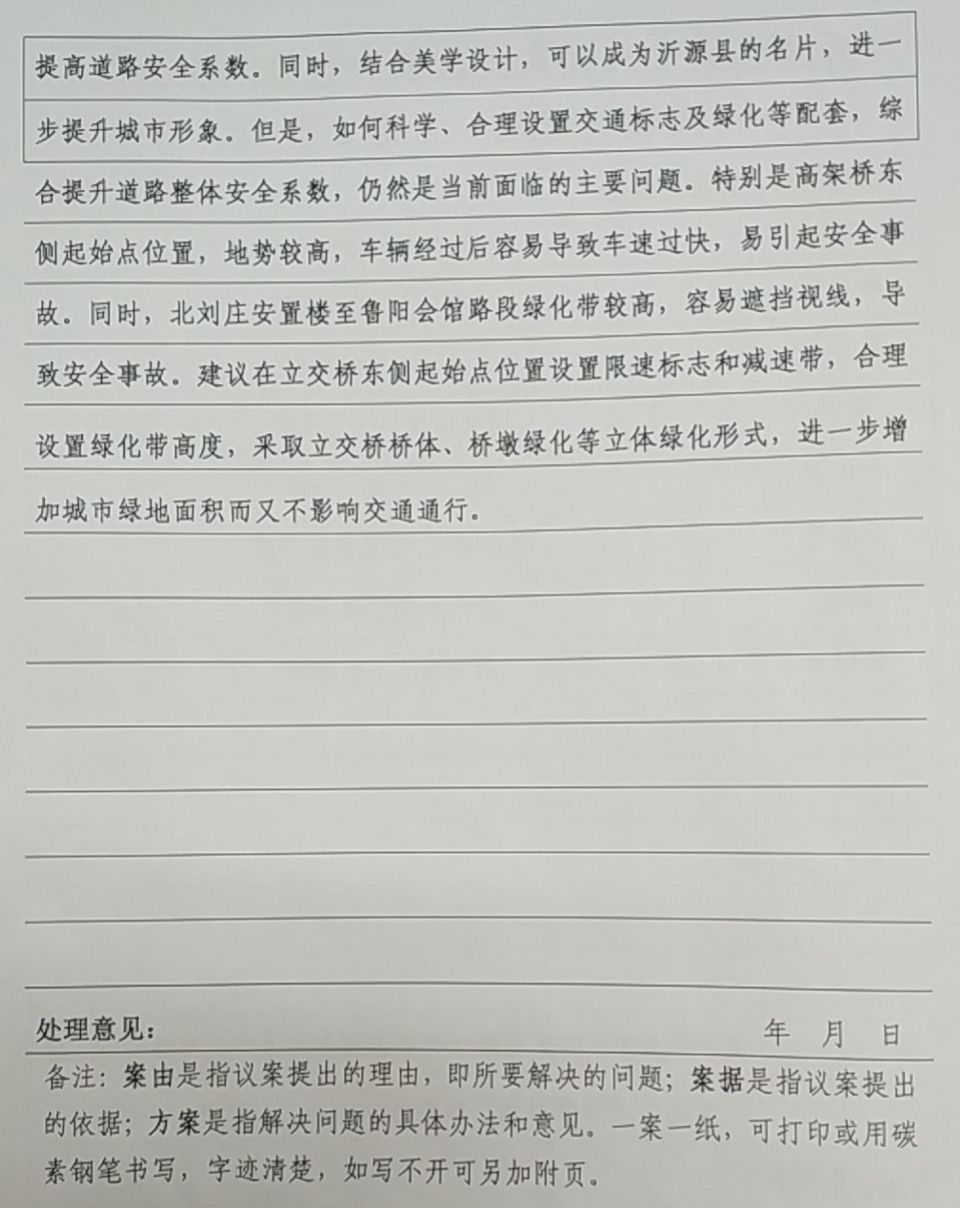 提高道路安全系数。同时，结合美学设计，可以成为沂源县的名片，进一
步提升城市形象。但是，如何科学、合理设置交通标志及绿化等配套，综
合提升道路整体安全系数，仍然是当前面临的主要问题。特别是高架桥东
侧起始点位置，地势较高，车辆经过后容易导致车速过快，易引起安全事
故。同时，北刘庄安置楼至鲁阳会馆路段绿化带较高，容易遮挡视线，导
致安全事故。建议在立交桥东侧起始点位置设置限速标志和减速带，合理
设置绿化带高度，采取立交桥桥体、桥墩绿化等立体绿化形式，进一步增
加城市绿地面积而又不影响交通通行。
处理意见： 年 月 日
备注：案由是指议案提出的理由，即所要解决的问题；案据是指议案提出
的依据；方案是指解决问题的具体办法和意见。一案一纸，可打印或用碳
素钢笔书写，字迹清楚，如写不开可另加附页。